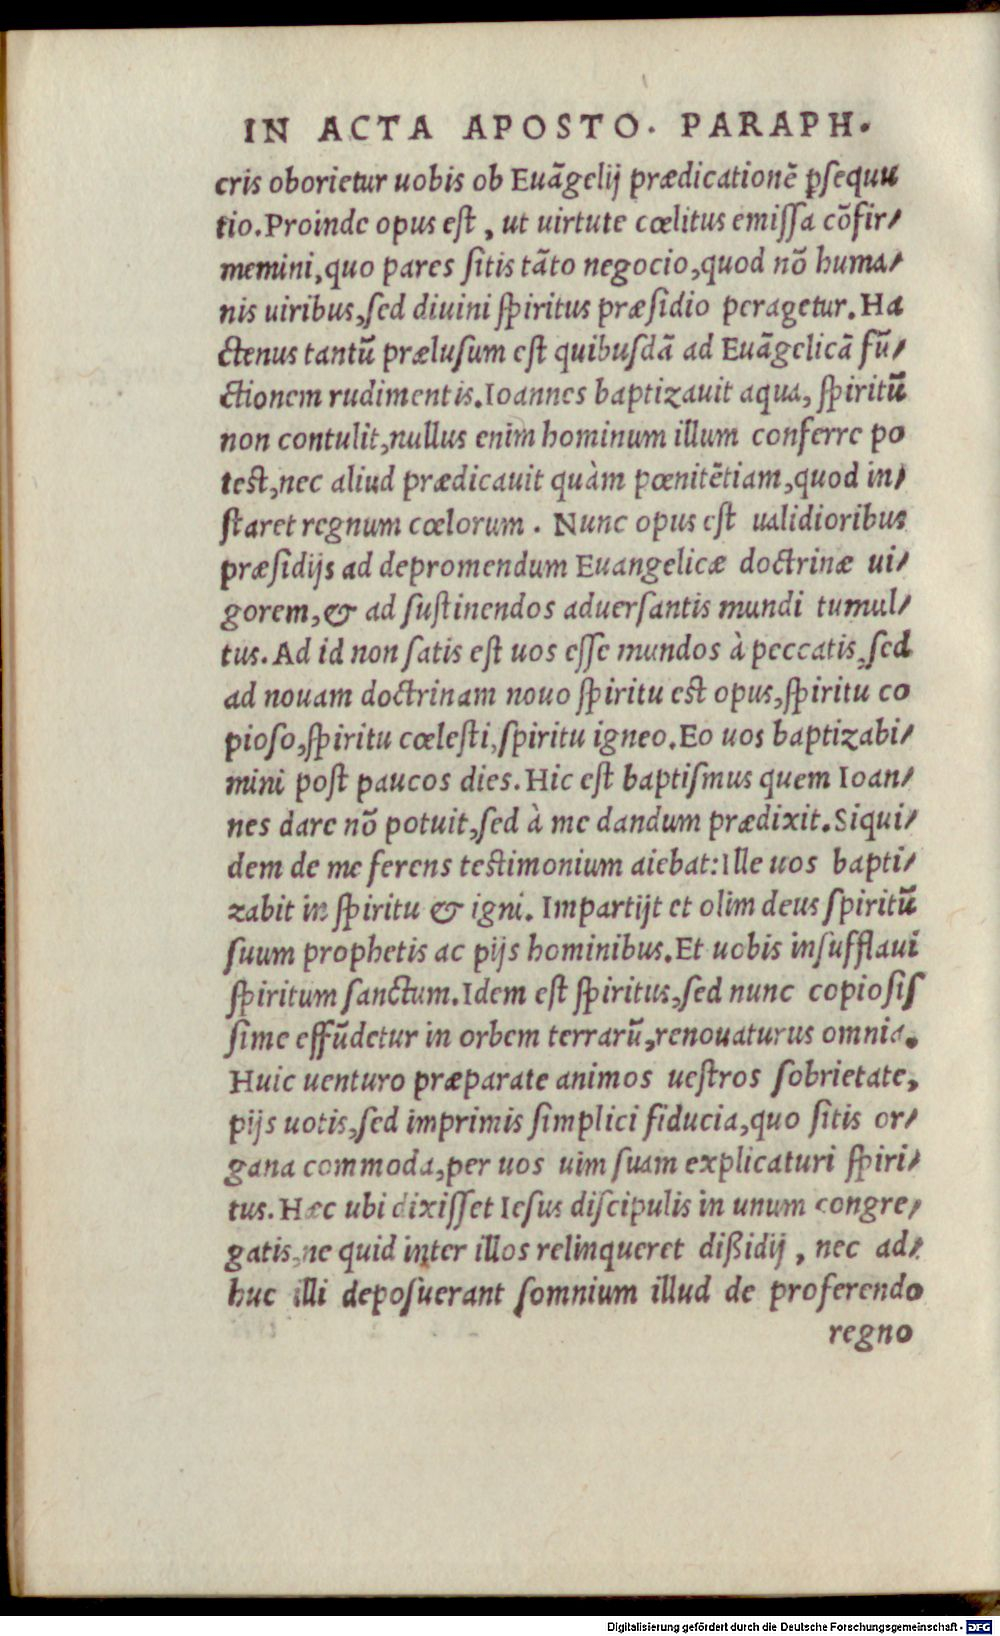 IN ACTA APOSTO. PARAPH.
cris oborietur uobis ob Euãgelij prædicationẽ ꝑsequu
tio. Proinde opus est, ut uirtute cœlitus emissa cõfir/
memini, quo pares sitis tãto negocio, quod nõ huma/
nis uiribus, sed diuini spiritus præsidio peragetur. Ha
ctenus tantũ prælusum est quibusdã ad Euãgelicã fũ/
ctionem rudimentis. Ioannes baptizauit aqua, spiritũ
non contulit, nullus enim hominum illum conferre po
test, nec aliud prædicauit quàm pœnitẽtiam, quod in/
staret regnum cœlorum. Nunc opus est ualidioribus
præsidijs ad depromendum Euangelicæ doctrinæ ui/
gorem, & ad sustinendos aduersantis mundi tumul/
tus. Ad id non satis est uos esse mundos à peccatis, sed
ad nouam doctrinam nouo spiritu est opus, spiritu co
pioso, spiritu cœlesti, spiritu igneo. Eo uos baptizabi/
mini post paucos dies. Hic est baptismus quem Ioan/
nes dare nõ potuit, sed à me dandum prædixit. Siqui/
dem de me ferens testimonium aiebat: Ille uos bapti/
zabit in spiritu & igni. Impartijt et olim deus spiritũ
suum prophetis ac pijs hominibus. Et uobis insufflaui
spiritum sanctum. Idem est spiritus, sed nunc copiosis
sime effũdetur in orbem terrarũ, renouaturus omnia.
Huic uenturo præparate animos uestros sobrietate,
pijs uotis, sed imprimis simplici fiducia, quo sitis or/
gana commoda, per uos uim suam explicaturi spiri/
tus. Hæc ubi dixisset Iesus discipulis in unum congre/
gatis, ne quid inter illos relinqueret dißidij, nec ad/
huc illi deposuerant somnium illud de proferendo
regno
Digitalisierung gefördert durch die Deutsche Forschungsgemeinschaft - DFG